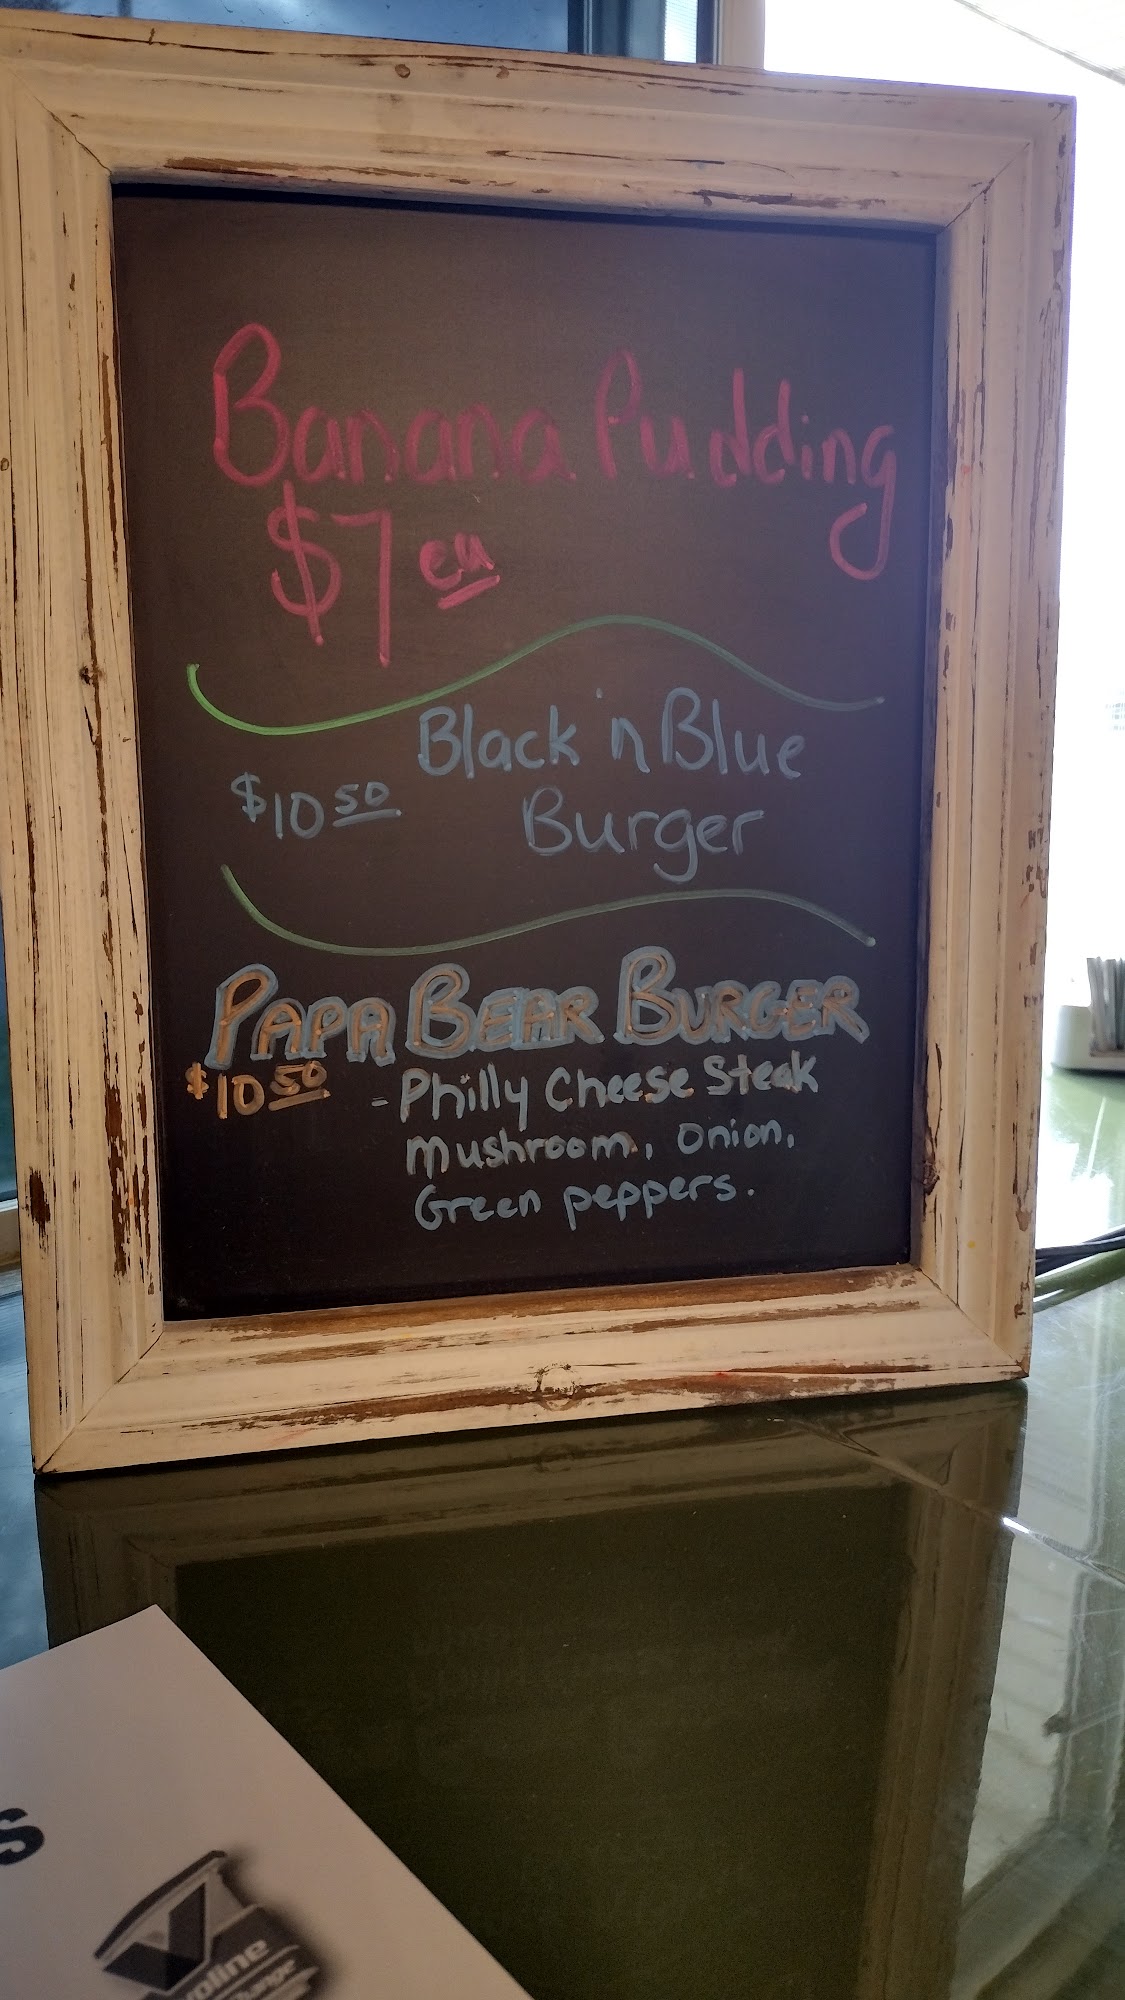 Banana Pudding
$7 ea
Black 'n Blue
$10 50
Burger
PAPA BEAR BURGER
$10 50 - Philly Cheese Steak
Mushroom, Onion,
Green peppers.
s